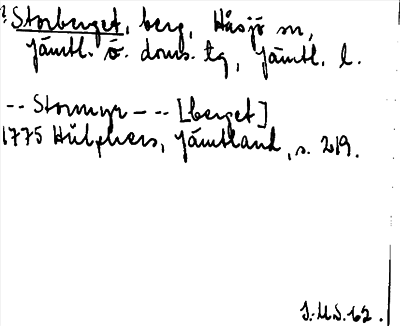 ? Storberget, berg, Håsjö sn,
Jämtl. ö. doms. tg, Jämtl. l.
-- Stormyr - -- [berget]
1775 Hülphers, Jämtland, s. 219.
J.M.S. 62.